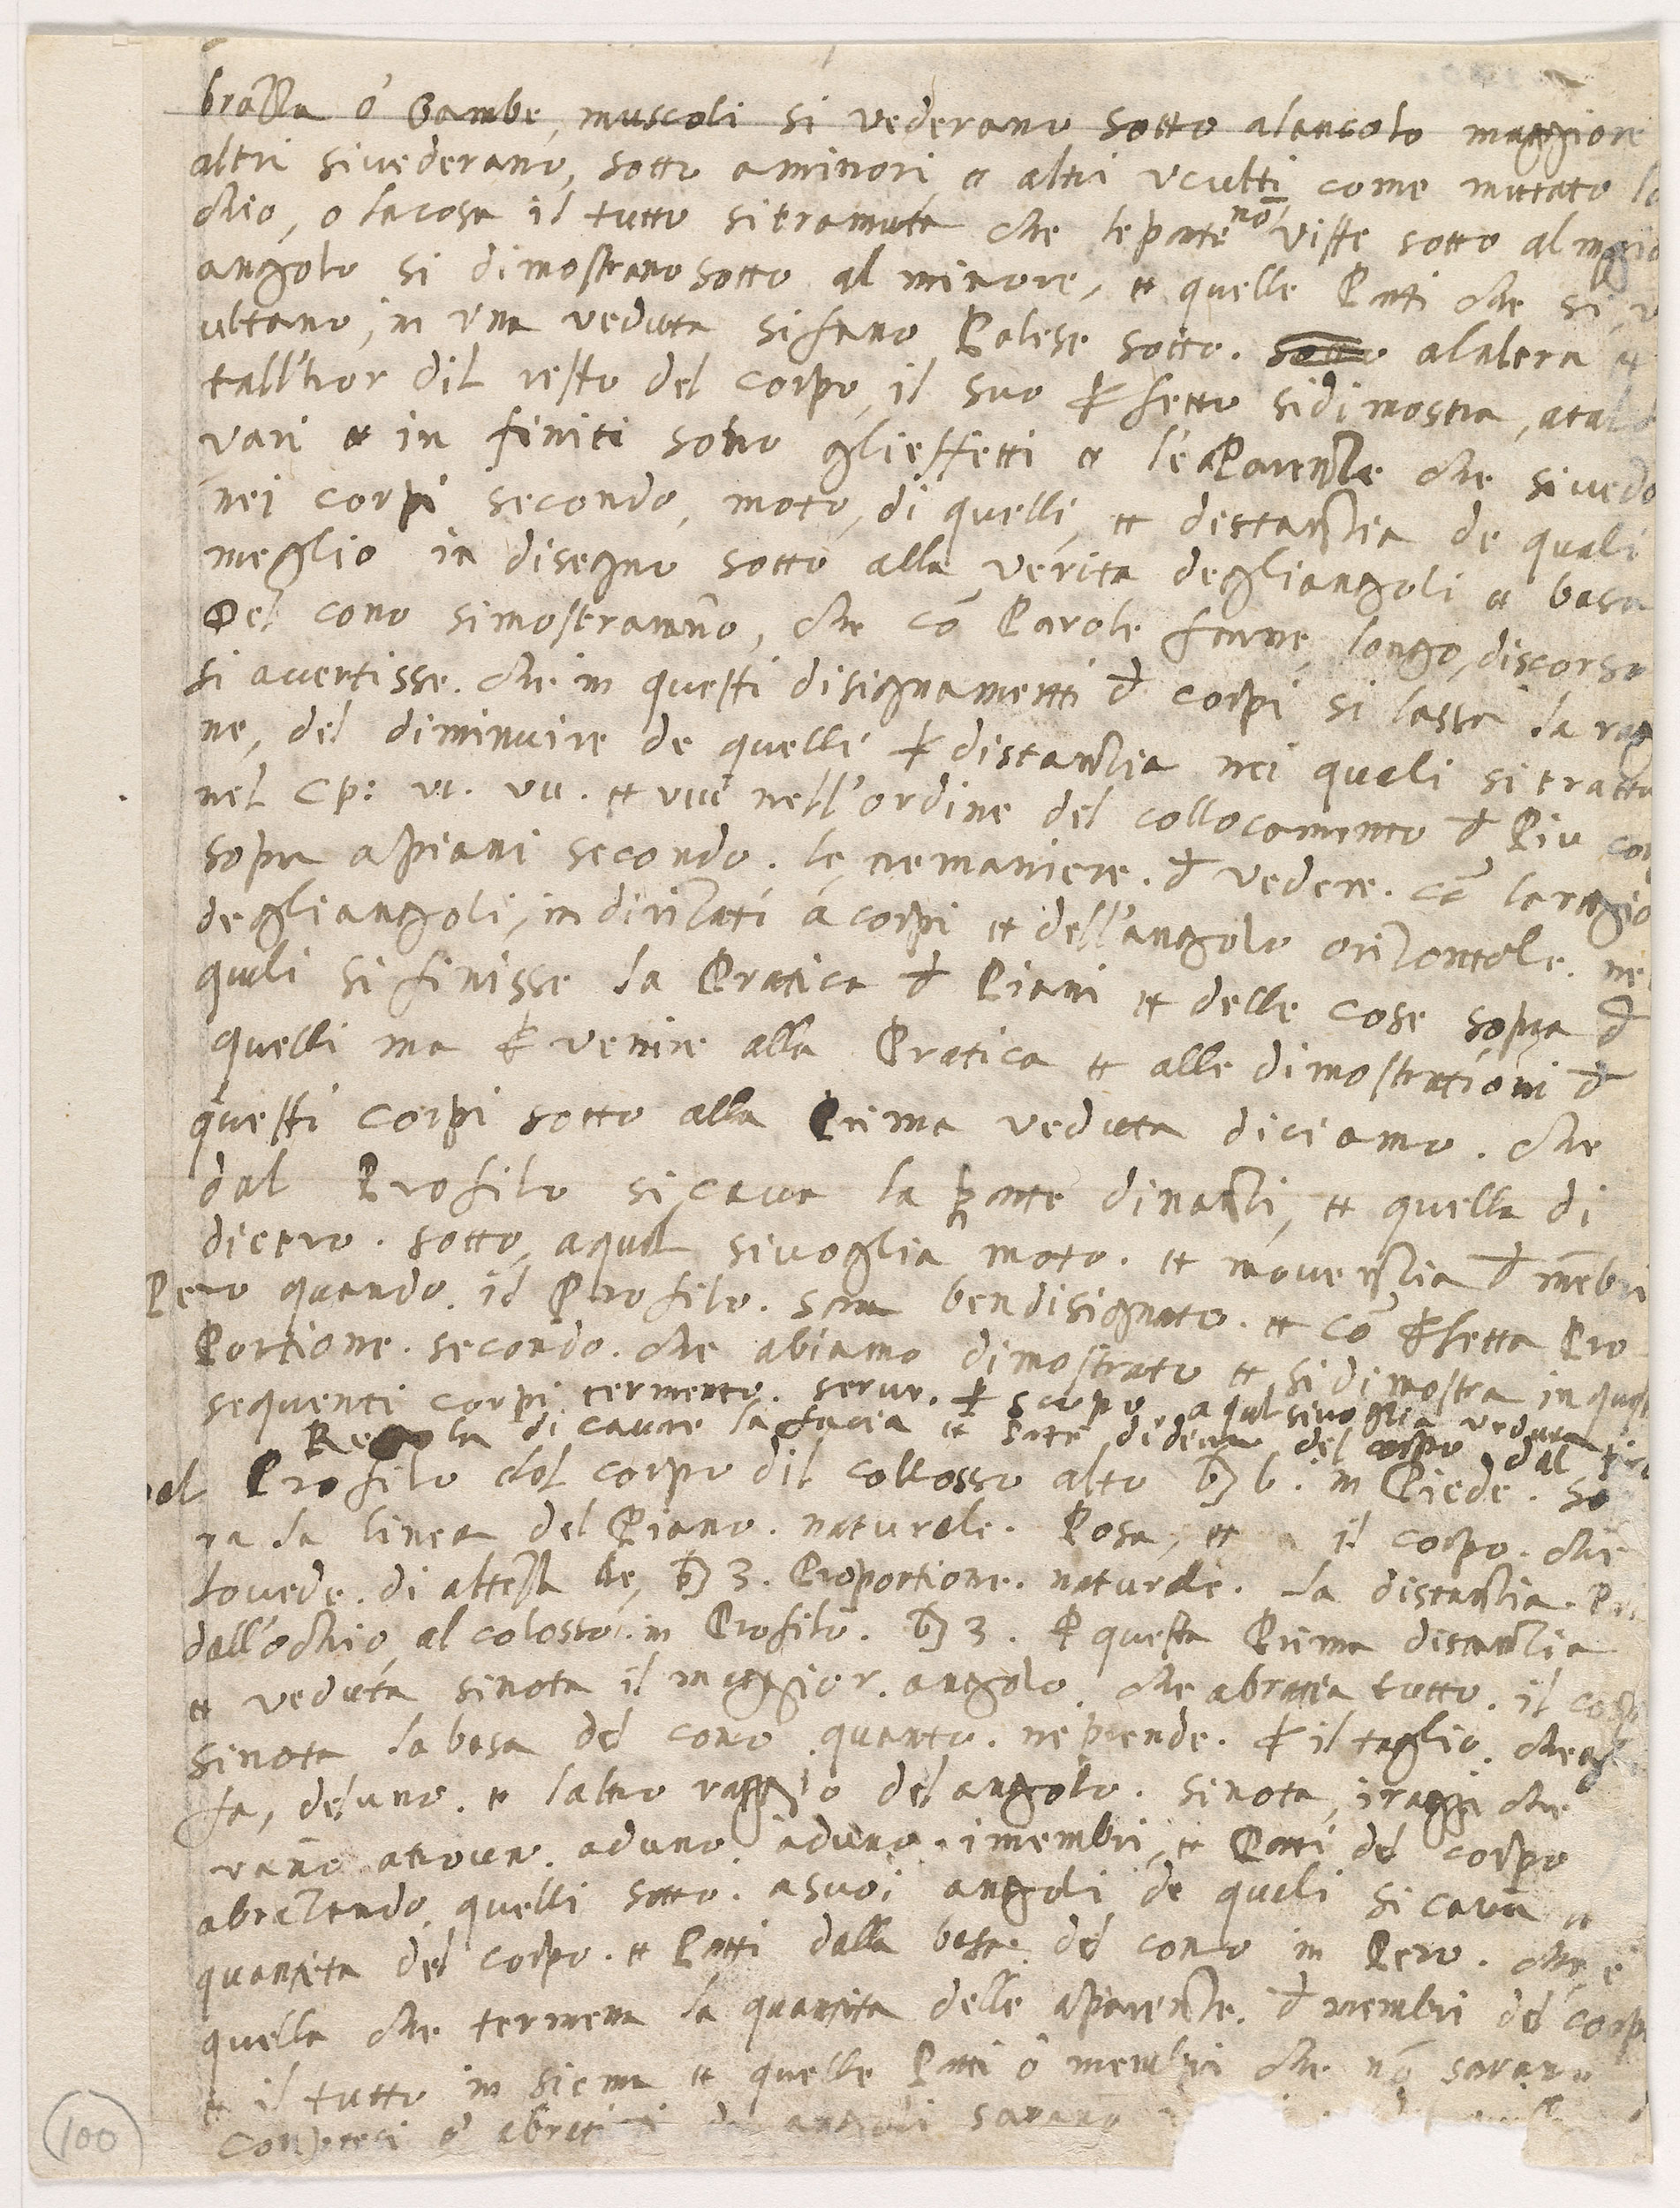 braZZa o Gambe, muscoli si vederano sotto alancolo maggiore
altri sivederano, sotto aminori et altri vculti come mutato lo
chio, o lacosa il tutto sitramuta che leparte nō viste sotto al mgio
angolo si dimostrano sotto al minore, et quelle Parti che si v
ultano, in vna veduta sifano Palese sotto. alaltra
tall'hor dil resto del corpo, il suo ꝑfetto sidimostra, atal
vari et in finiti sono glieffetti et l'eaParenZe che sivedo
nei corpi secondo, moto, di quelli, et distanZia de quali
meglio in disegno sotto alla verita degliangoli et basa
Del cono simostrarano, che cō Parole farne, longo, discorso
si avertisse. che in questi disignamenti d corpi si lassa la rag
ne, del diminuire de quelli ꝑ distanZia nei quali sitratta
nel Cp: vi. vii. et viii nell'ordine del collocamento d Piu cor
sopra apiani secondo. le nemaniere. d vedere. cō laragio
degliangoli, indiriZati a corpi et dell'angolo oriZontale. ne
quali si finisse la Pratica d Piani et delle cose sopra d
quelli ma ꝑ venire alla Pratica et alle dimostrationi d
questi corpi sotto alla Prima veduta diciamo. che
dal Profilo sicava la parte dinanZi, et quella di
dietro. sotto, aqual sivoglia moto. et movenZia d mēbri
Pero quando. il Profilo. sara bendisignato. et cō ꝑfetta Pro
Portione. secondo. che abiamo dimostrato et si dimostra in
sequenti corpi termento. serve. ꝑ scopo. aqual sivoglia veduta
Regola di cavare la facia et parte didietro del corpo dal
Profilo del corpo dil collosso alto b 6. in Piede. so
ra la linea del Piano. naturale. Posa, et il corpo. che
lovede. di alteZa de, b 3. Proportione. naturale. la distanZia.
dall'ochio, al colosso. in Profilo. b 3. ꝑ questa Prima distanZia
et veduta sinota il maggior. angolo. che abratia tutto. il corp
sinota, labasa del cono quanto. neprende. ꝑ il taglio. che
fa, deluno. et laltro raggio del angolo. sinota, iraggi che
vano atrovar. aduno aduno. imembri, et Parti del corpo
abraZando quelli sotto. asuoi angoli de quali si cava
quantita del corpo. et Parti dalla basa. del cono in Pero. che e
quella che termena la quantita delle aparenZe. d membri del corpo
et il tutto in siema et quelle Parti o membri che nō sarano
angoli sarano
100